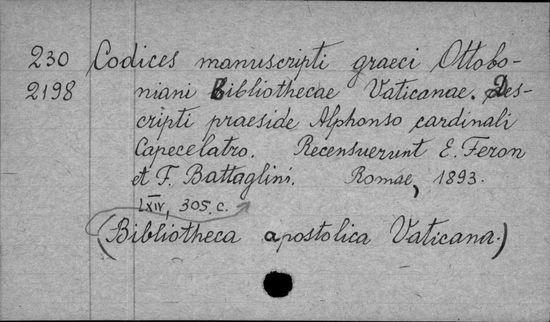 230 Codices manuscripti graeci Ottobo-
2198 niani Bibliothecae Vaticanae. Des-
cripti praeside Alphonso cardinali
Capecelatro. Recensuerunt E. Feron
et F. Battaglini. Romae, 1893.
LXIV, 305. c.
(Bibliotheca apostolica Vaticana.)